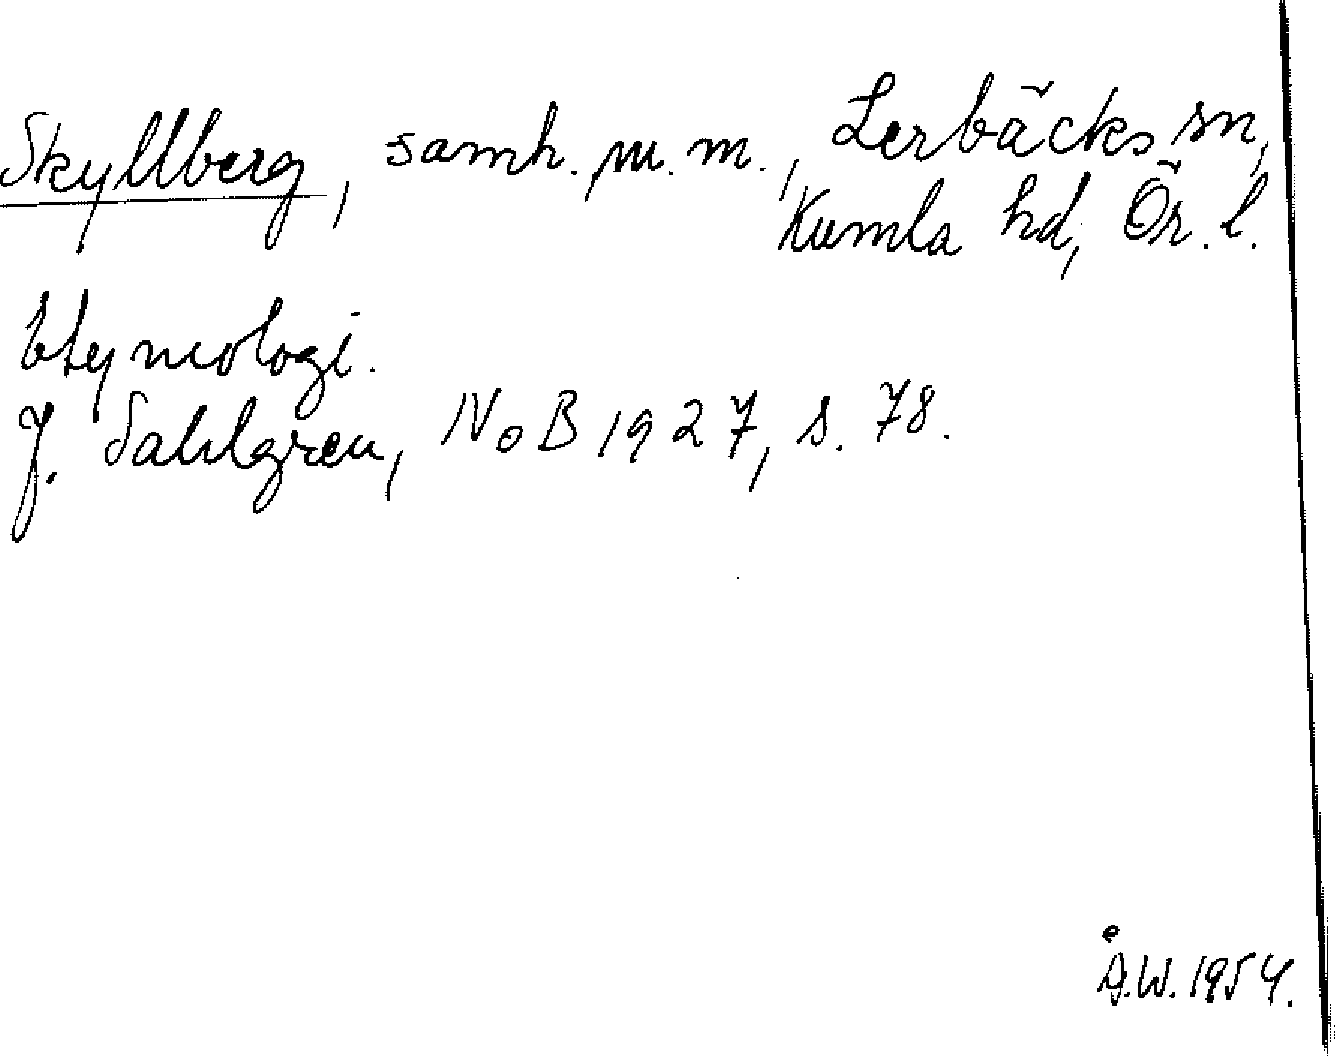 Skyllberg, samh. m. m., Lerbäcks sn,
Kumla hd, Ör. l.
Etymologi.
J. Sahlgren, NoB 1927, s. 78.
Å.W. 1954.